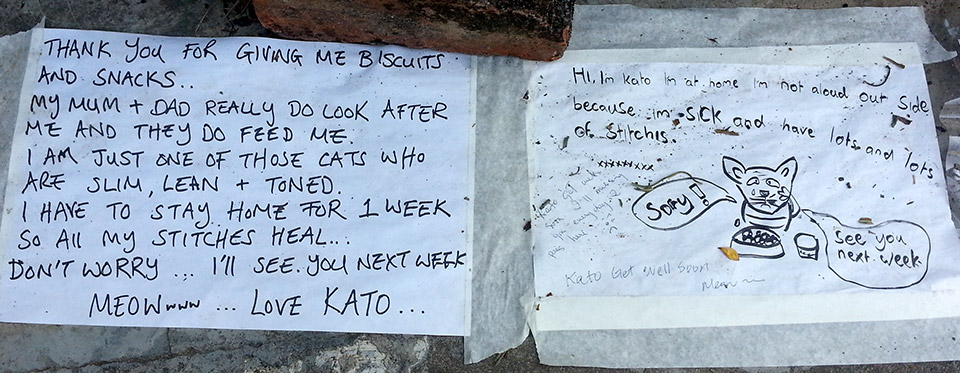 THANK YOU FOR GIVING ME BISCUITS
AND SNACKS..
MY MUM + DAD REALLY DO LOOK AFTER
ME AND THEY DO FEED ME.
I AM JUST ONE OF THOSE CATS WHO
ARE SLIM, LEAN + TONED.
I HAVE TO STAY HOME FOR 1 WEEK
SO All MY STITCHES HEAL...
DON'T WORRY ... I'LL SEE YOU NEXT WEEK
MEOWwww ... LOVE KATO...
Hi. Im Kato Im at home Im not aloud out side
because im SICK and have lots and lots
of Stitchis.
xxxxxxxxx
Sory!
See you
next week
Kato Get well soon
Meow